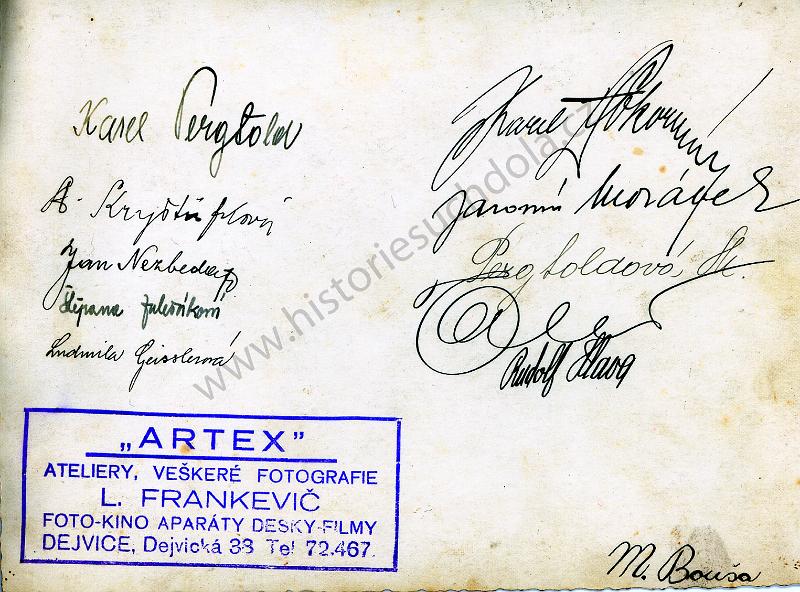 Karel Pergtold
A. Kryštůfková
Jan Nezbeda
Štěpana
Ludmila Geisslerová
Karel Pokorný
Jaromír Morávek
Pergtoldová St.
Rudolf Sláva
M. Bouša
„ARTEX”
ATELIERY, VEŠKERÉ FOTOGRAFIE
L. FRANKEVIČ
FOTO-KINO APARÁTY DESKY-FILMY
DEJVICE, Dejvická 38 Tel 72.467.
www.historiesuchdola.cz